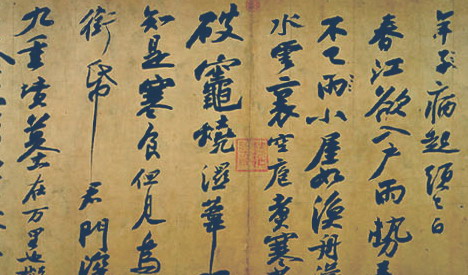 年子病起須已白
春江欲入戶雨勢
不已雨小屋如漁舟
水雲裏空庖煮寒
破竈燒濕葦
知是寒食但見烏
銜帋君門深
九重墳墓在万里也擬